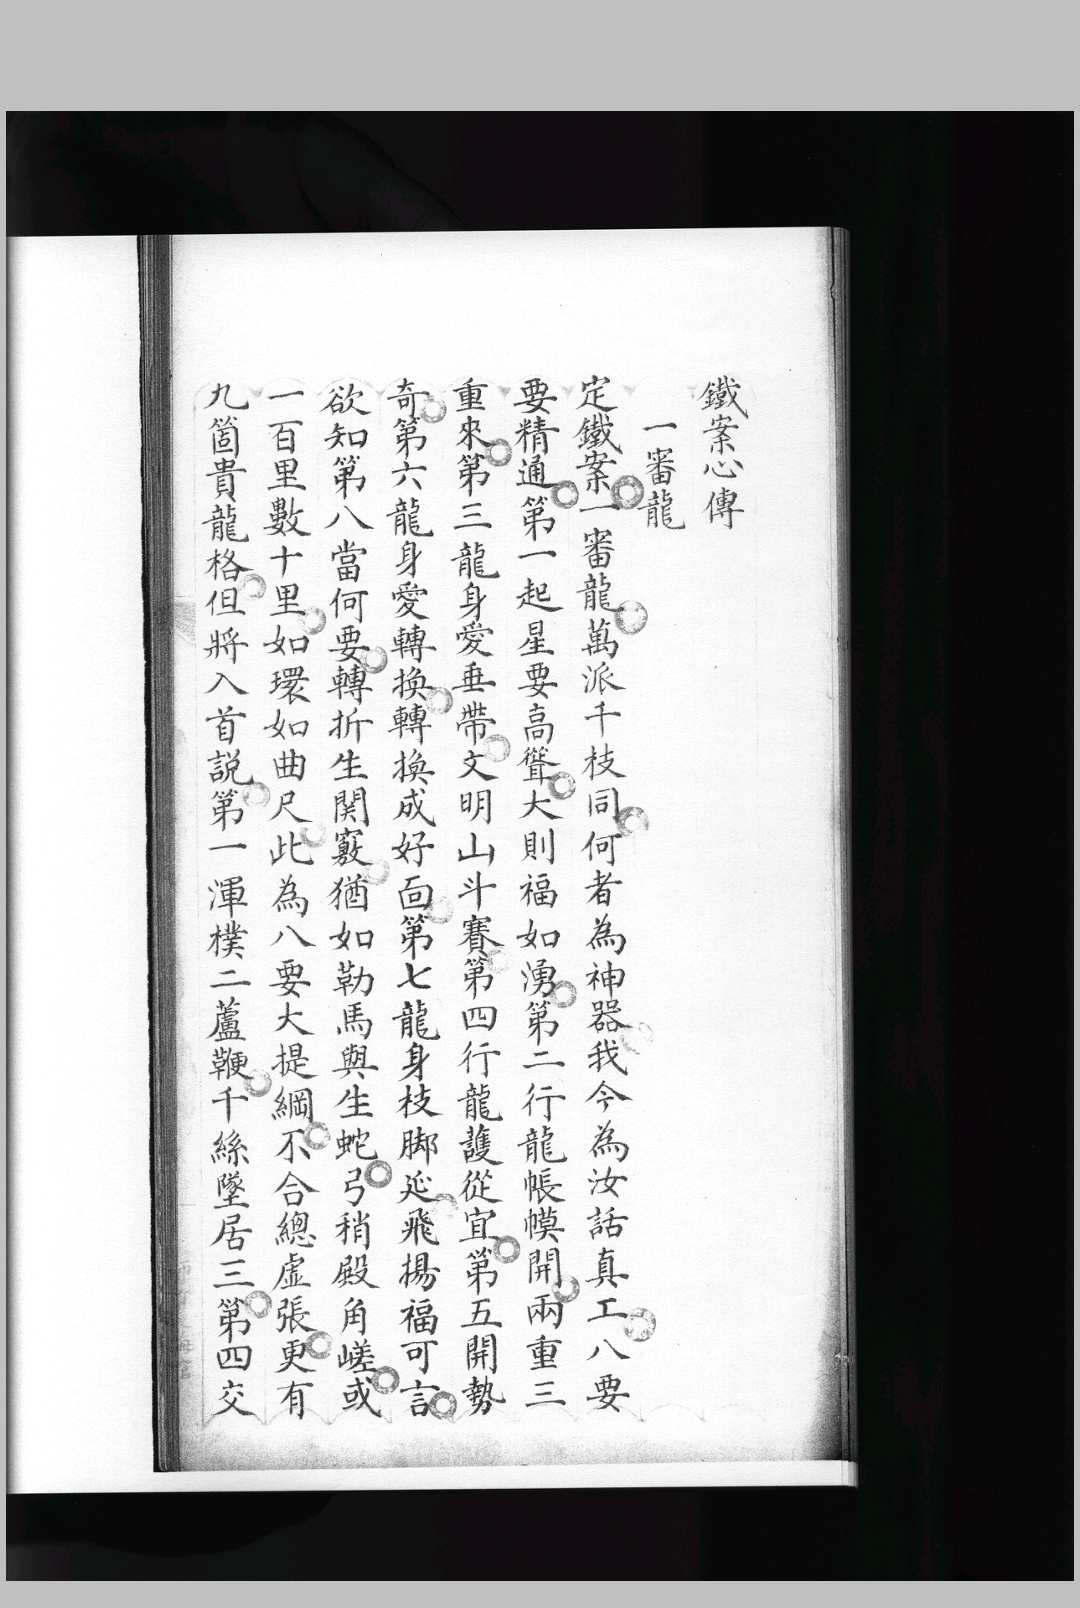 鐵案心傳
一審龍
定鐵案一審龍萬派千枝同何者為神器我今為汝話真工八要
要精通第一起星要高聳大則福如湧第二行龍帳幙開兩重三
重來第三龍身愛垂帶文明山斗賽第四行龍護從宜第五開勢
奇第六龍身愛轉換轉換成好面第七龍身枝脚延飛揚福可言
欲知第八當何要轉折生関竅猶如勒馬與生蛇弓稍殿角嵯或
一百里數十里如環如曲尺此為八要大提綱不合總虛張更有
九箇貴龍格但將入首説第一渾樸二蘆鞭千絲墜居三第四交